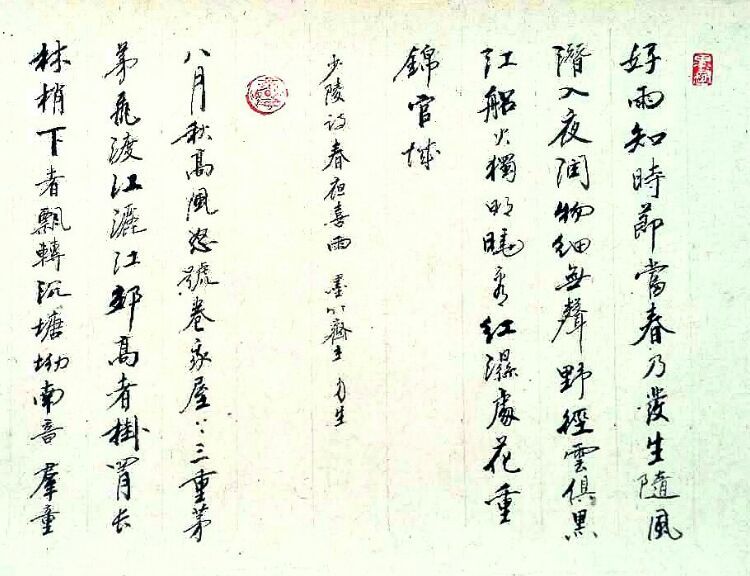 好雨知時節當春乃發生隨風
潛入夜潤物細無聲野徑雲俱黑
江船火獨明曉看紅濕處花重
錦官城
少陵詩春夜喜雨 墨齋主
八月秋高風怒號卷我屋上三重茅
茅飛渡江灑江郊高者掛罥长
林梢下者飄轉沉塘坳南音羣童